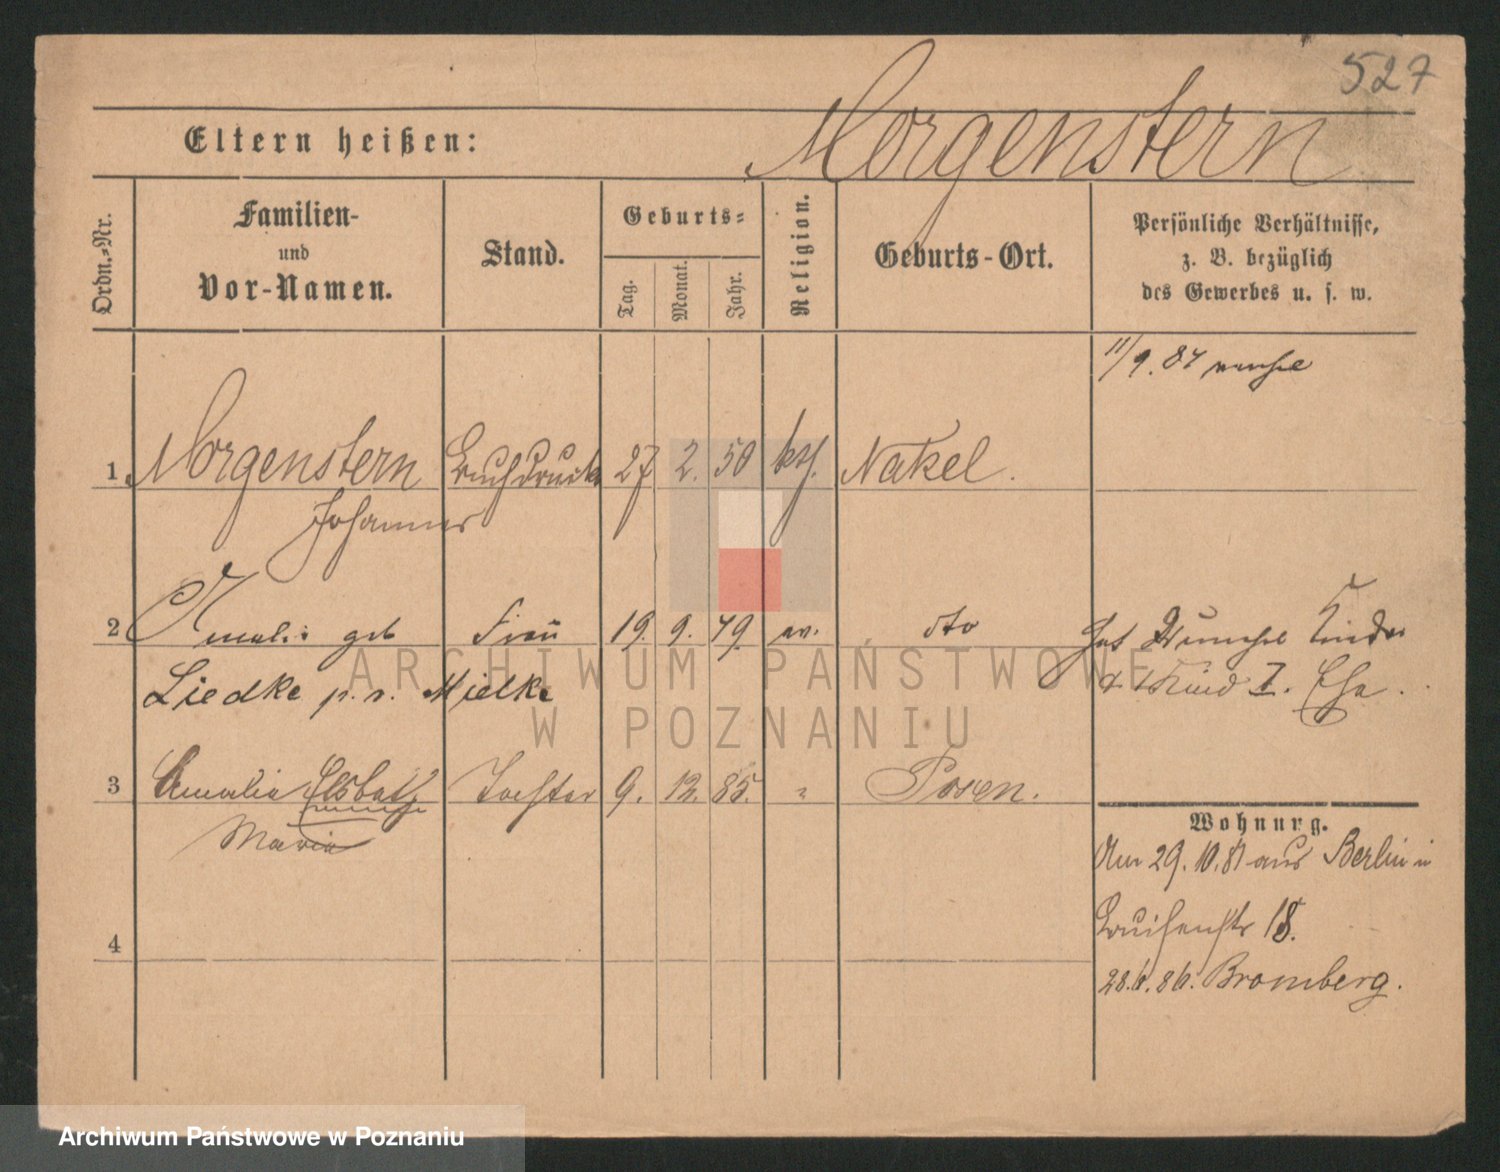 527
Eltern heißen: Morgenstern
Ordn.-Nr.
Familien-
und
Vor-Namen.
Stand.
Geburts-
Tag.
Monat.
Jahr.
Religion.
Geburts-Ort.
Persönliche Verhältnisse,
z. B. bezüglich
des Gewerbes u. s. w.
11/9. 84
1 Morgenstern Buchdrucker 27 2. 50 kth. Nakel.
Johannes
2 Amalie geb Frau 19. 9. 49. ev. dto
Liedke p. v. Mielke
Kind I. Ehe.
3 Amalie Elsbeth Tochter 9. 12. 85. " Posen.
Maria
Wohnung.
Am 29. 10. 81 aus Berlin in
Louisenstr 18.
4
28. 6. 86. Bromberg.
ARCHIWUM PAŃSTWOWE
W POZNANIU
Archiwum Państwowe w Poznaniu